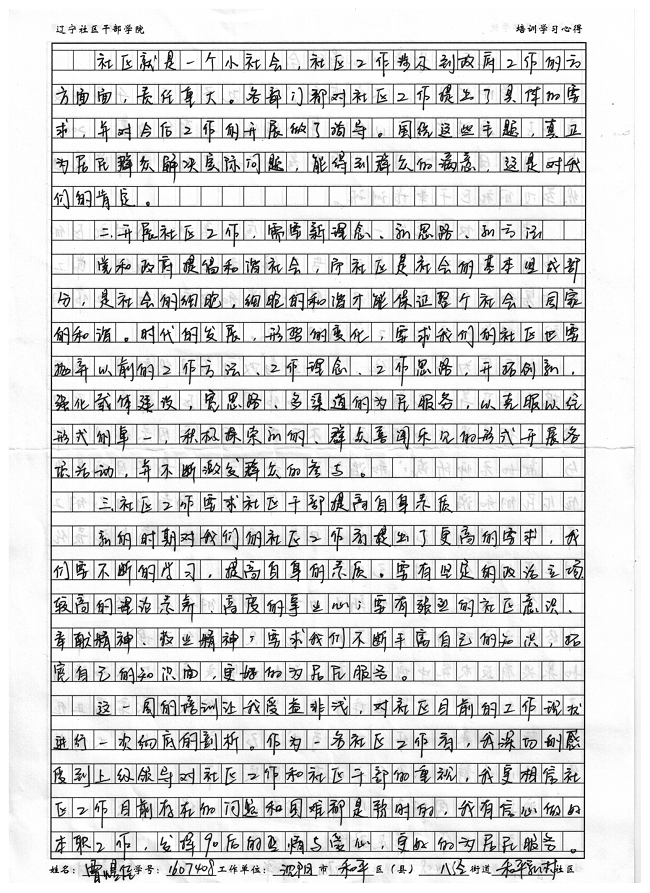 辽宁社区干部学院 培训学习心得
社区就是一个小社会，社区工作涉及到政府工作的方
方面面，责任重大。各部门都对社区工作提出了具体的要
求，并对今后工作的开展做了指导。围绕这些主题，真正
为居民群众解决实际问题，能得到群众的满意，这是对我
们的肯定。
二.开展社区工作，需要新理念、新思路、新方法
党和政府提倡和谐社会，而社区是社会的基本组成部
分，是社会的细胞，细胞的和谐才能保证整个社会、国家
的和谐。时代的发展，形势的变化，要求我们的社区也要
抛弃以前的工作方法、工作理念、工作思路，开拓创新，
强化载体建设，宽思路、多渠道的为民服务，以克服以往
形式的单一，积极探索新的、群众喜闻乐见的形式开展各
项活动，并不断激发群众的参与。
三.社区工作要求社区干部提高自身素质
新的时期对我们的社区工作者提出了更高的要求，我
们要不断的学习，提高自身的素质。要有坚定的政治立场
较高的理论素养、高度的事业心；要有强烈的社区意识、
奉献精神、敬业精神；要求我们不断丰富自己的知识，拓
宽自己的知识面，更好的为居民服务。
这一周的培训让我受益非浅，对社区目前的工作现状
进行一次彻底的剖析。作为一名社区工作者，我深切的感
受到上级领导对社区工作和社区干部的重视，我更相信社
区工作目前存在的问题和困难都是暂时的，我有信心做好
本职工作，发挥90后的热情与爱心，更好的为居民服务。
姓名：曹 学号：1607408 工作单位：沈阳市 和平 区（县） 八经 街道 和平新村社区